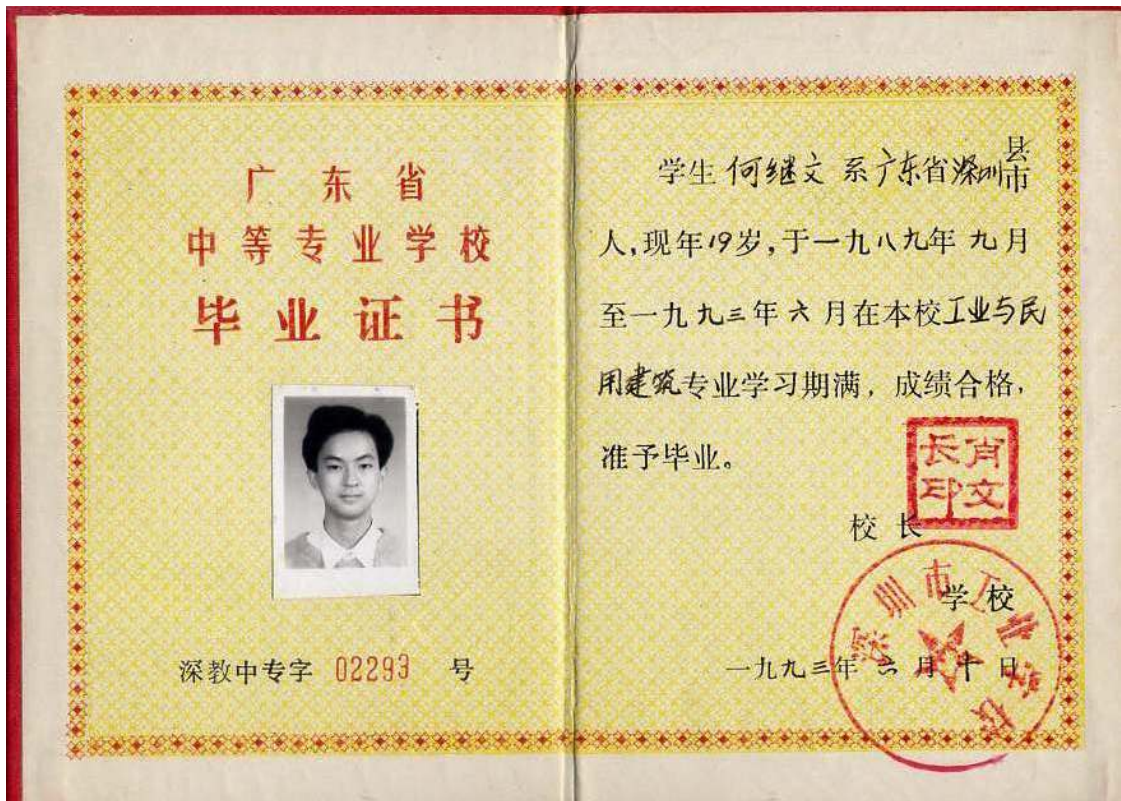 广东省
中等专业学校
毕业证书
深教中专字 02293 号
学生何继文系广东省深圳县市
人,现年19岁,于一九八九年九月
至一九九三年六月在本校工业与民
用建筑专业学习期满，成绩合格，
准予毕业。
肖文长印
校长
学校
深圳市工业学校
一九九三年六月十日